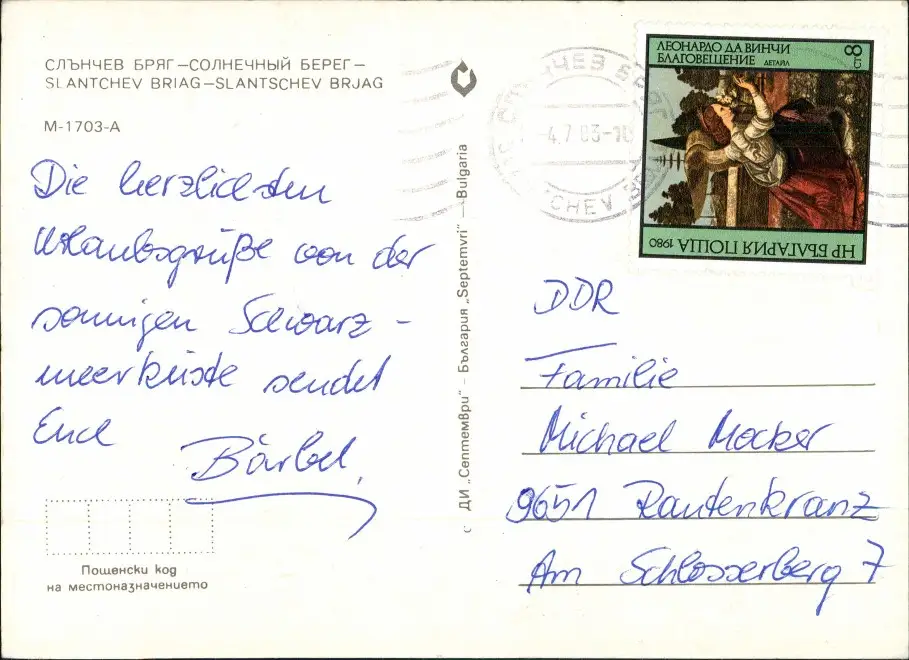 СЛЪНЧЕВ БРЯГ—СОЛНЕЧНЫЙ БЕРЕГ—
SLANTCHEV BRIAG—SLANTSCHEV BRJAG
М-1703-А
Die herzlichsten
Urlaubsgrüße von der
sonnigen Schwarz-
meerküste sendet
Euch
Bärbel.
Пощенски код
на местоназначението
ДИ „Септември“ — България „Septemvri“ — Bulgaria
СЛЪНЧЕВ БРЯГ
-4.7.83-1
CHEV B
ЛЕОНАРДО ДА ВИНЧИ
БЛАГОВЕЩЕНИЕ ДЕТАЙЛ
8
НР БЪЛГАРИЯ ПОЩА 1980
DDR
Familie
Michael Mocker
9651 Rautenkranz
Am Schlosserberg 7